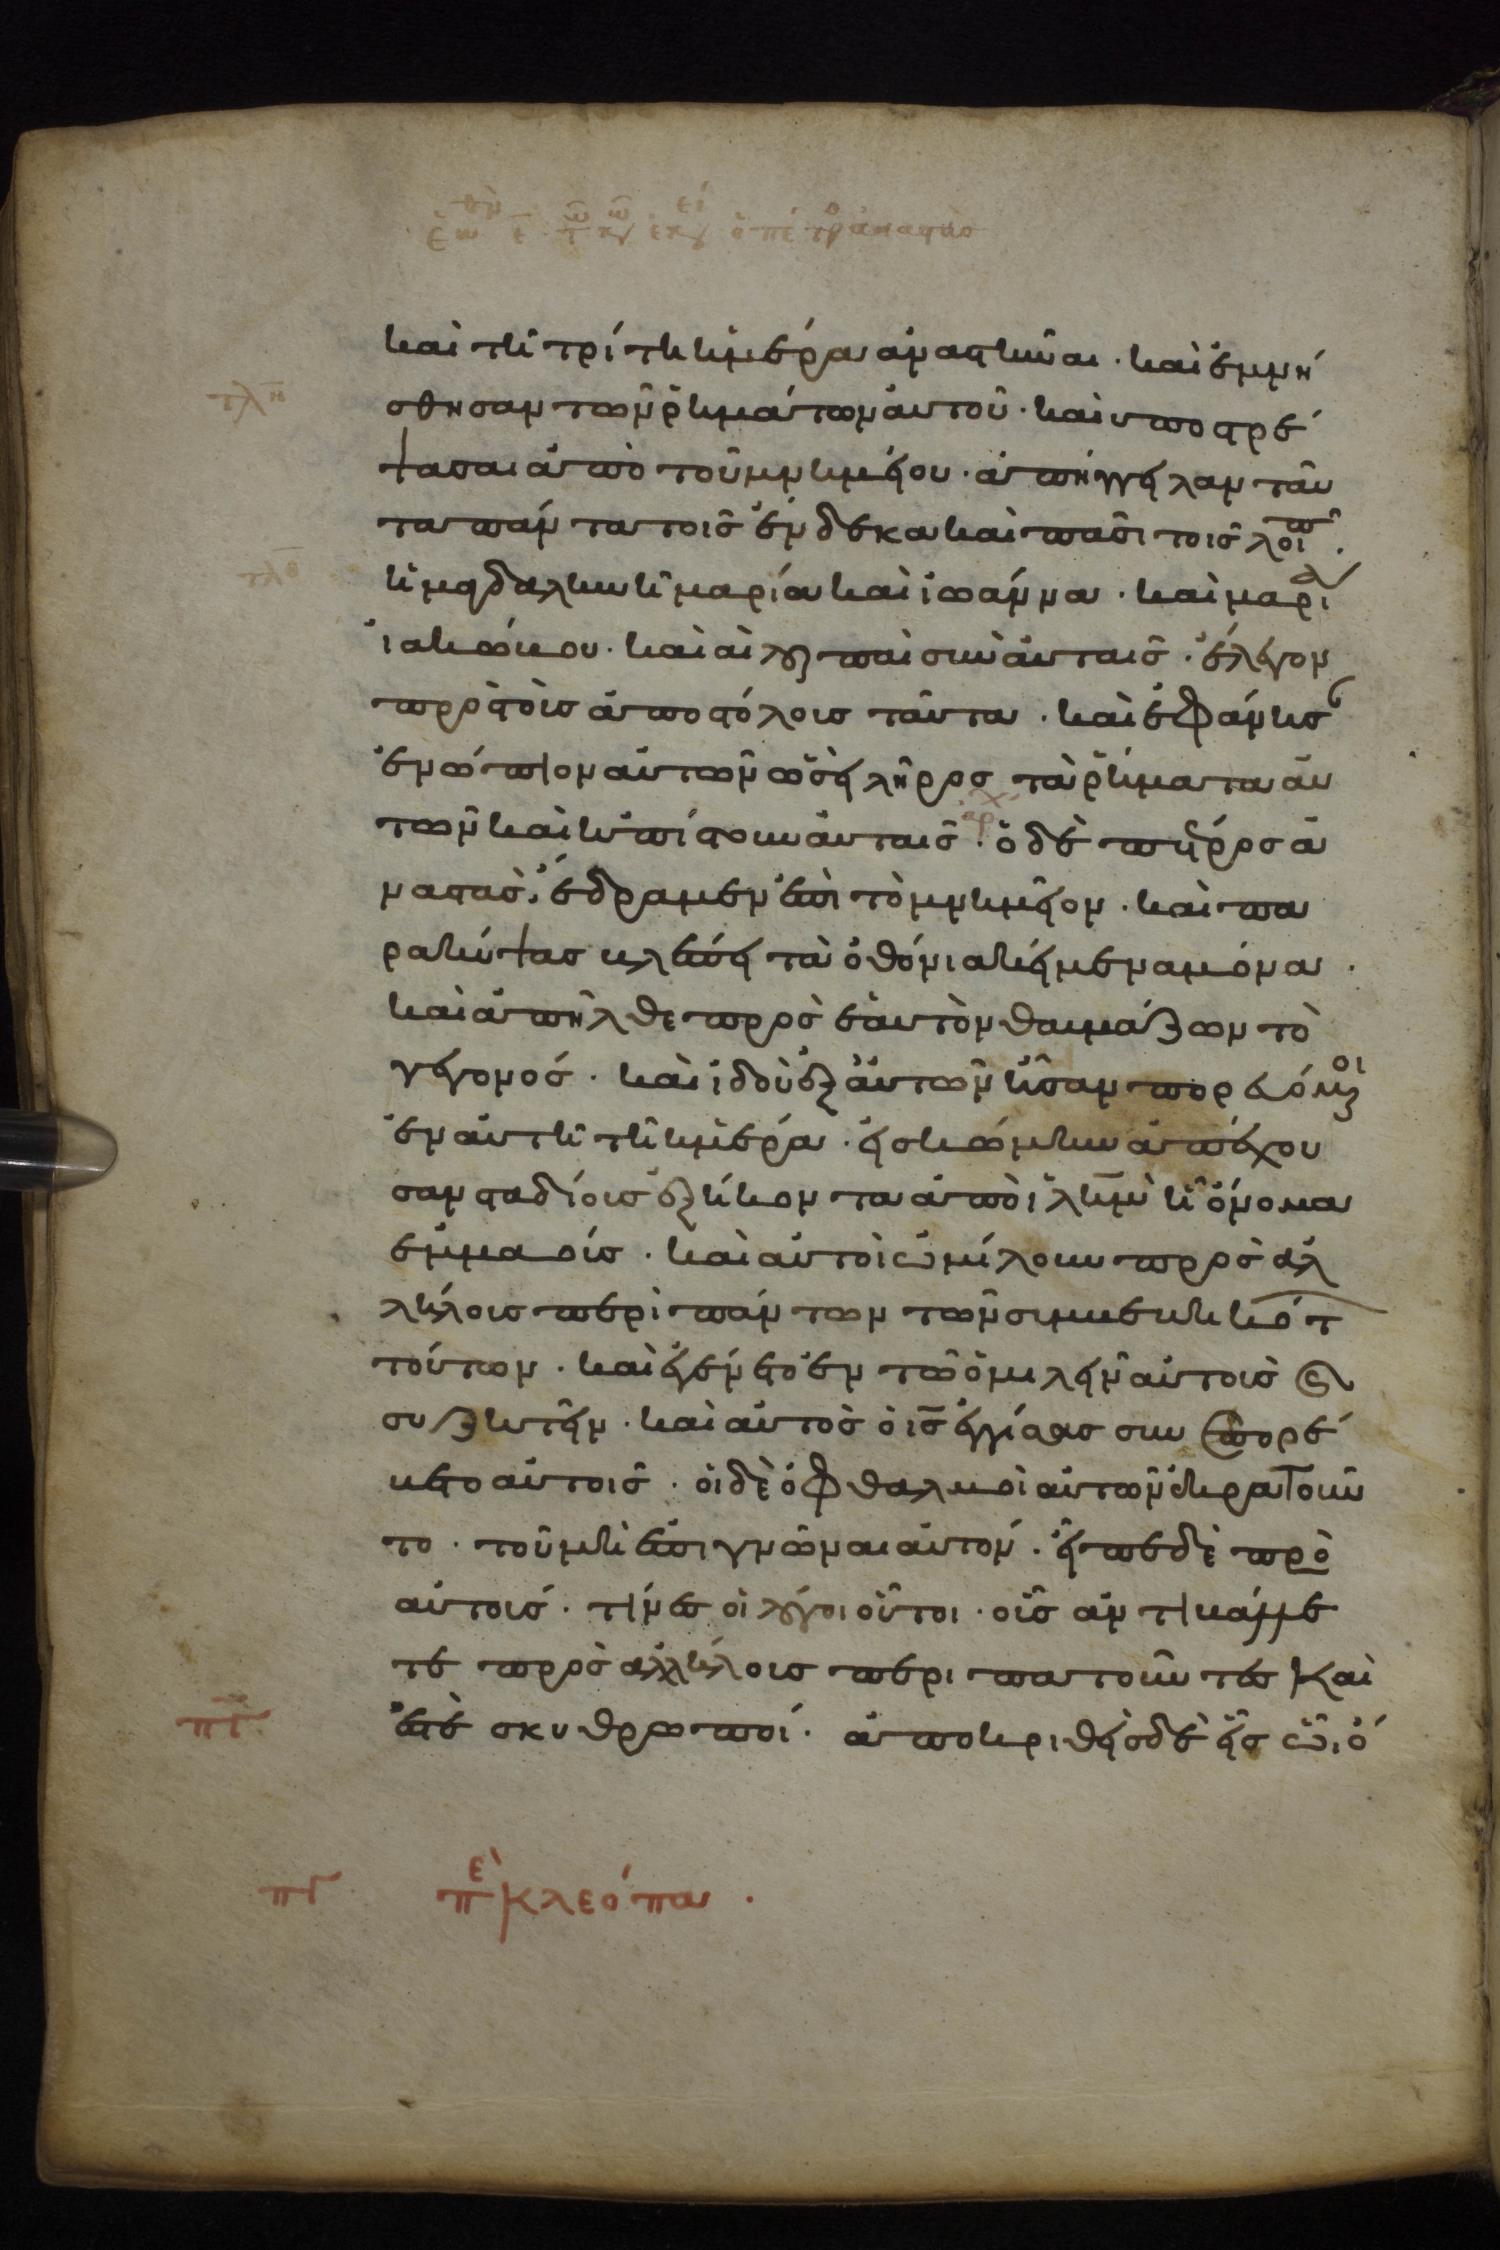 καὶ τῆ τρίτη ἡμέρα ἀναστῆναι · καὶ ἐμνή
σθησαν τῶν ῥημάτων αὐτοῦ · καὶ ὑποστρέ
ψασαι ἀπὸ τοῦ μνημείου · ἀπήγγειλαν ταῦ
τα πάντα τοῖς ἕνδεκα καὶ πᾶσι τοῖς λοιπ ·
ἡ μαγδαληνὴ μαρία καὶ ἰωάννα · καὶ μαρία
ἰακώβου · καὶ αἱ λοιπαὶ σὺν αὐταῖς · ἔλεγον
πρὸς τοὺς ἀποστόλους ταῦτα · καὶ ἐφάνησ
ἐνώπιον αὐτῶν ὡσεὶ λῆρος τὰ ῥήματα αὐ
τῶν καὶ ἠπίστουν αὐταῖς · ὁ δὲ πέτρος ἀ
ναστὰς ἔδραμεν ἐπὶ τὸ μνημεῖον · καὶ πα
ρακύψας βλέπει τὰ ὀθόνια κείμενα μόνα ·
καὶ ἀπῆλθε πρὸς ἑαυτὸν θαυμάζων τὸ
γεγονός · καὶ ἰδοὺ δύο ἐξ αὐτῶν ἦσαν πορευόμενοι
ἐν αὐτῆ τῆ ἡμέρα · εἰς κώμην ἀπέχου
σαν σταδίους ἑξήκοντα ἀπὸ ἰλημ ἧ ὄνομα
ἐμμαούς · καὶ αὐτοὶ ὡμίλουν πρὸς ἀλ
λήλους περὶ πάντων τῶν συμβεβηκότ
τούτων · καὶ ἐγένετο ἐν τῶ ὁμιλεῖν αὐτοὺς καὶ
συζητεῖν · καὶ αὐτὸς ὁ ις ἐγγίσας συνεπορεύ
ετο αὐτοῖς · οἱ δὲ ὀφθαλμοὶ αὐτῶν ἐκρατοῦν
το · τοῦ μὴ ἐπιγνῶναι αὐτόν · εἶπε δὲ πρὸ
αὐτούς · τίνες οἱ λόγοι οὗτοι · οὓς ἀντιβάλλε
τε πρὸς ἀλλήλους περιπατοῦντες καὶ
ἐστὲ σκυθρωποί · ἀποκριθεὶς δὲ εἷς ὧ ὄ
πγ
πγ πε κλεόπα ·